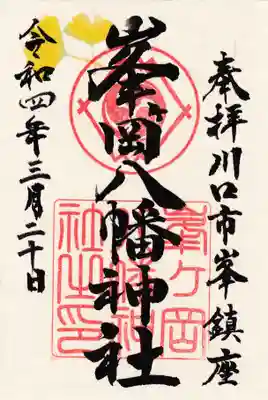 奉拝川口市峯鎮座
峯岡八幡神社
令和四年三月二十日
峯ヶ岡
八幡神
社之印